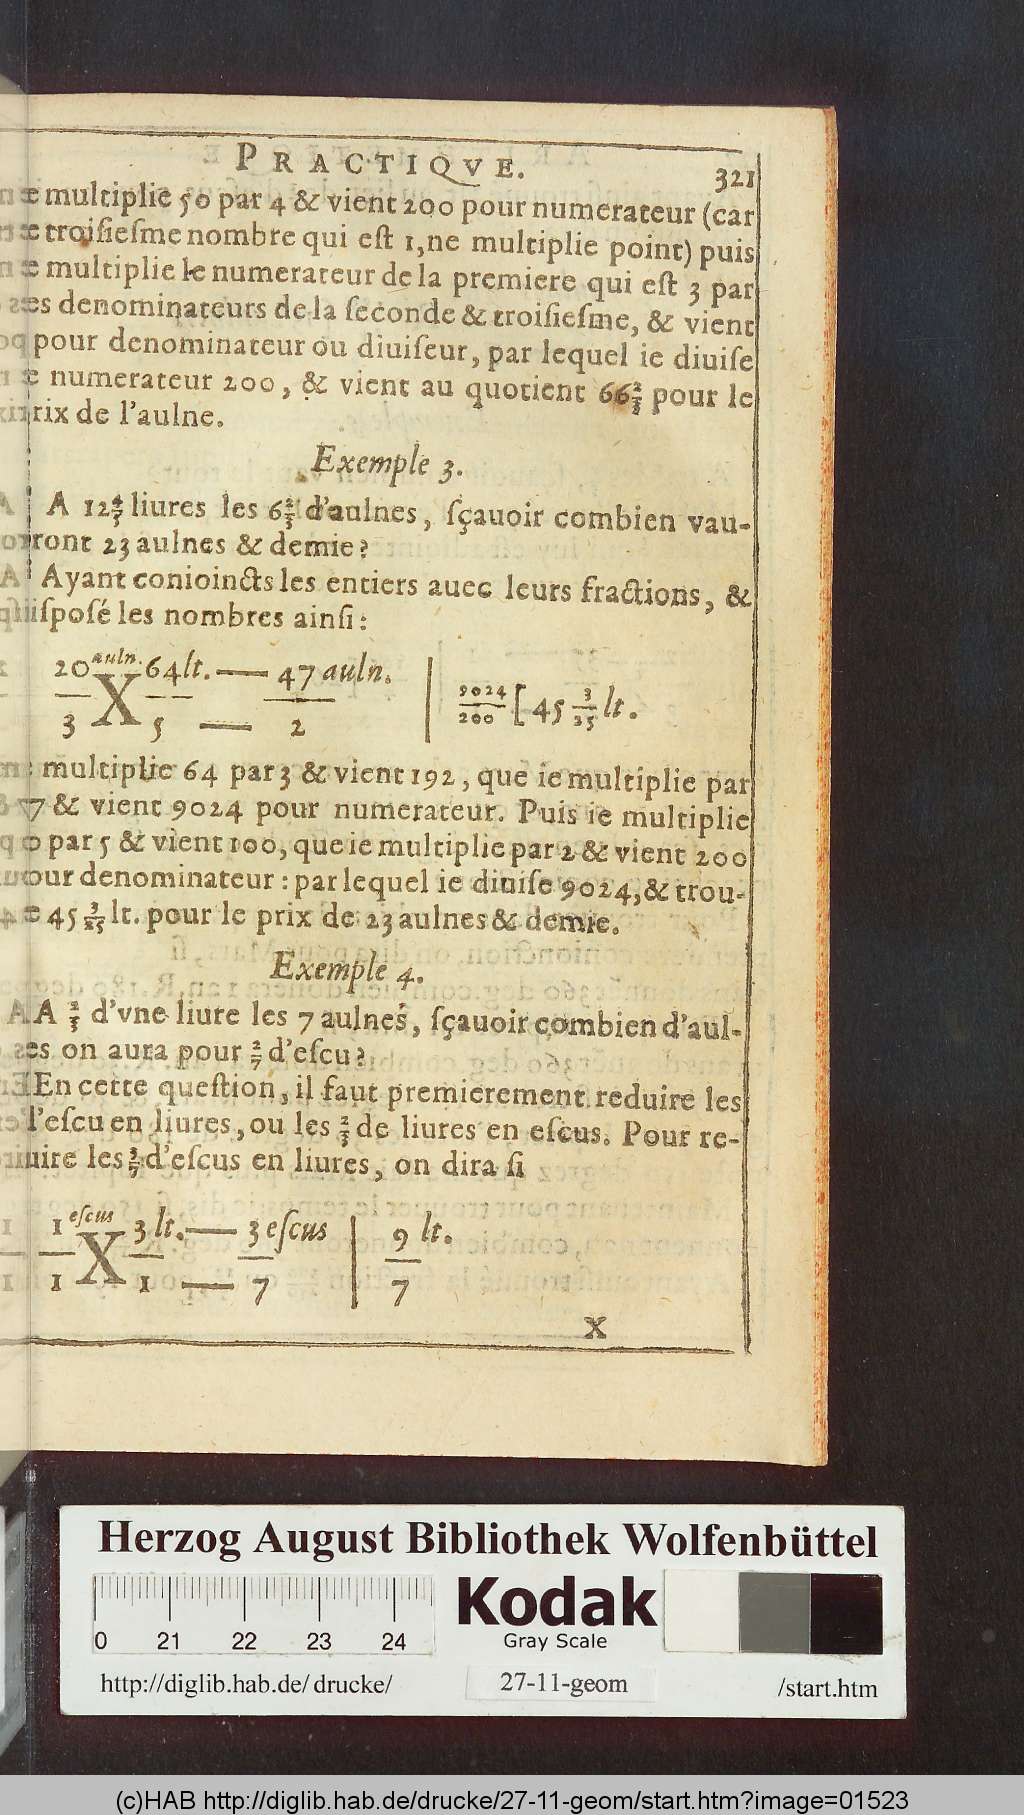 PRACTIQVE. 321
multiplie 50 par 4 & vient 200 pour numerateur (car
troisiesme nombre qui est 1, ne multiplie point) puis
multiplie le numerateur de la premiere qui est 3 par
es denominateurs de la seconde & troisiesme, & vient
pour denominateur ou diuiseur, par lequel ie diuise
numerateur 200, & vient au quotient 66 2/3 pour le
rix de l'aulne.
Exemple 3.
A 12 4/5 liures les 6 2/3 d'aulnes, sçauoir combien vau-
ront 23 aulnes & demie?
Ayant conioincts les entiers auec leurs fractions, &
isposé les nombres ainsi:
20 auln. 64 lt. — 47 auln. | 9024/200 [ 45 3/25 lt.
3 X 5 — 2
multiplie 64 par 3 & vient 192, que ie multiplie par
7 & vient 9024 pour numerateur. Puis ie multiplie
0 par 5 & vient 100, que ie multiplie par 2 & vient 200
our denominateur: par lequel ie diuise 9024, & trou-
45 3/25 lt. pour le prix de 23 aulnes & demie.
Exemple 4.
A 2/3 d'vne liure les 7 aulnes, sçauoir combien d'aul-
es on aura pour 2/7 d'escu?
En cette question, il faut premierement reduire les
l'escu en liures, ou les 2/3 de liures en escus. Pour re-
uire les 3/7 d'escus en liures, on dira si
1 escus 3 lt. — 3 escus | 9 lt.
1 X 1 — 7 | 7
X
Herzog August Bibliothek Wolfenbüttel
0 21 22 23 24
Kodak
Gray Scale
http://diglib.hab.de/drucke/ 27-11-geom /start.htm
(c)HAB http://diglib.hab.de/drucke/27-11-geom/start.htm?image=01523